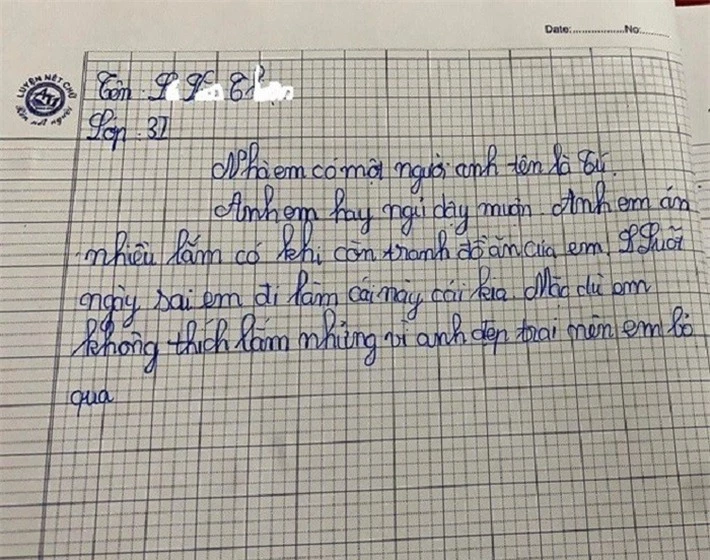 Date:...................No:..........
LUYỆN NÉT CHỮ
Rèn nết người
Tên:
Lớp: 3I
Nhà em có một người anh tên là Tú.
Anh em hay ngủ dậy muộn. Anh em ăn
nhiều lắm có khi còn tranh đồ ăn của em. Suốt
ngày sai em đi làm cái này cái kia. Mặc dù em
không thích lắm nhưng vì anh đẹp trai nên em bỏ
qua